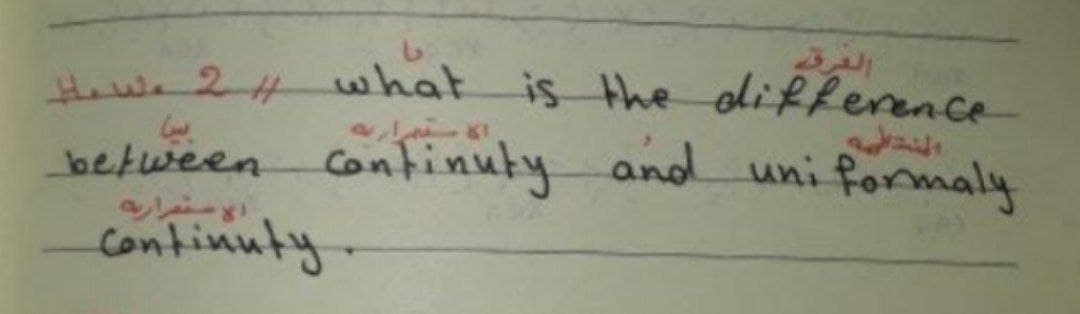 ما الفرق
H.W. 2 // what is the difference
بين الاستمرارية و المنتظمه
between continuty and uniformaly
الاستمرارية
continuty.